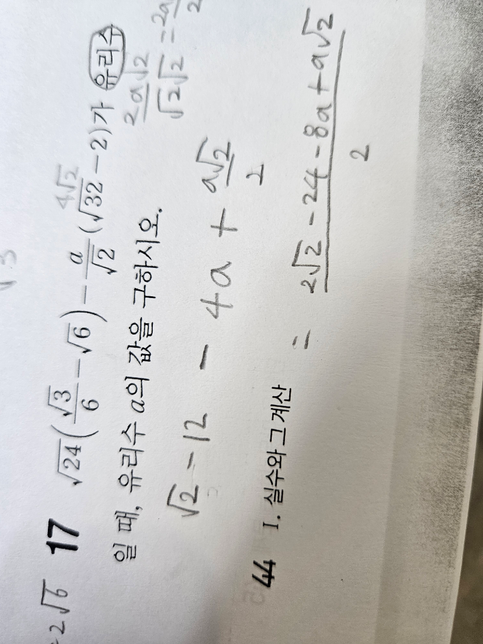 17 √24(√3/6 − √6) − a/√2(√32 − 2)가 유리수
일 때, 유리수 a의 값을 구하시오.
4√2
2a√2/√2√2 = 2a
√2 − 12 − 4a + a√2/2
= (2√2 − 24 − 8a + a√2)/2
2√6
44 I. 실수와 그 계산